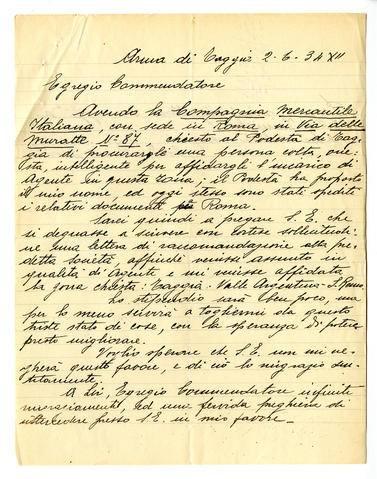 Arma di Taggia 2-6-34 XII
Egregio Commendatore
Avendo la Compagnia Mercantile
Italiana, con sede in Roma, in Via delle
Muratte N° 87, chiesto al Podestà di Tag-
gia di procurargli una persona colta, one-
sta, intelligente per affidargli l'incarico di
Agente in questa zona, il Podestà ha proposto
il mio nome ed oggi stesso sono stati spediti
i relativi documenti Roma.
Sarei quindi a pregare S. E. che
si degnasse a scrivere con cortese sollecitudi-
ne una lettera di raccomandazione alla pre-
detta Società, affinché venisse assunto in
qualità di Agente e mi venisse affidata
la zona chiesta: Taggia - Valle Argentina - S. Remo.
Lo stipendio sarà ben poco, ma
per lo meno servirà a togliermi da questo
triste stato di cose, con la speranza di poter
presto migliorare.
Voglio sperare che S. E. non mi ne-
gherà questo favore, e di ciò lo ringrazio sen-
titamente.
A Lei, Egregio Commendatore infiniti
ringraziamenti, ed una fervida preghiera di
intercedere presso S. E. in mio favore -